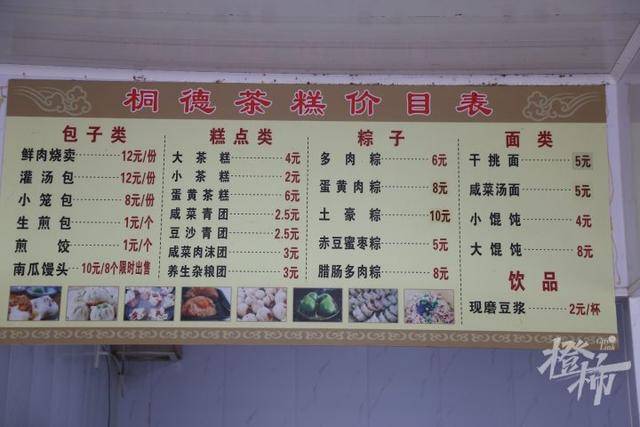 桐德茶糕价目表
包子类
鲜肉烧卖 12元/份
灌汤包 12元/份
小笼包 8元/份
生煎包 1元/个
煎饺 1元/个
南瓜馒头 10元/8个限时出售
糕点类
大茶糕 4元
小茶糕 2元
蛋黄茶糕 6元
咸菜青团 2.5元
豆沙青团 2.5元
咸菜肉沫团 3元
养生杂粮团 3元
粽子
多肉粽 6元
蛋黄肉粽 8元
土豪粽 10元
赤豆蜜枣粽 5元
腊肠多肉粽 8元
面类
干挑面 5元
咸菜汤面 5元
小馄饨 4元
大馄饨 8元
饮品
现磨豆浆 2元/杯
橙柿
City Link